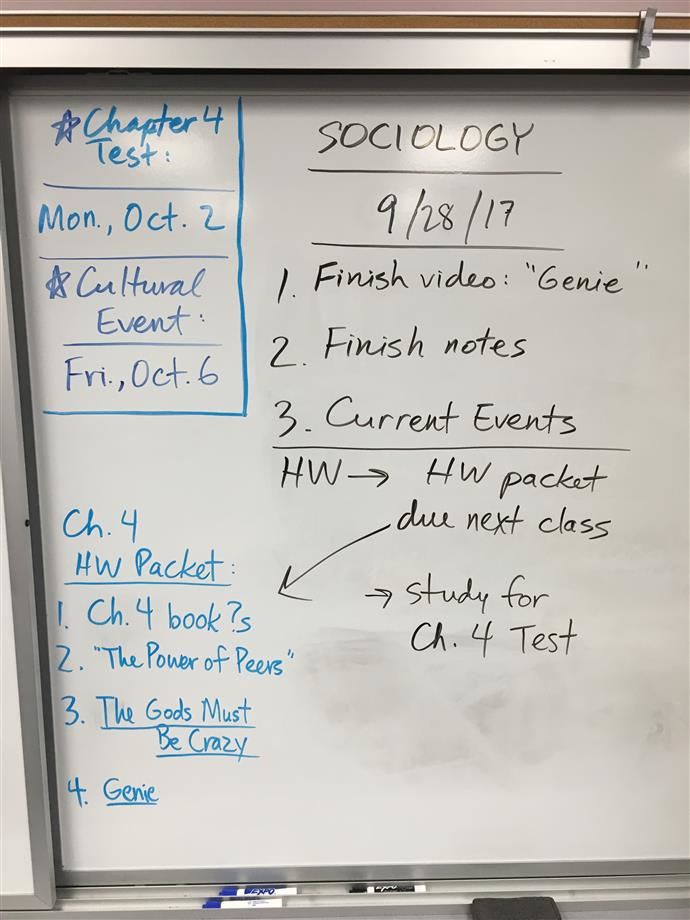 ☆Chapter 4
Test:
Mon., Oct. 2
☆Cultural
Event:
Fri., Oct. 6
SOCIOLOGY
9/28/17
1. Finish video: "Genie"
2. Finish notes
3. Current Events
HW → HW packet
due next class
→ study for
Ch. 4 Test
Ch. 4
HW Packet:
1. Ch. 4 book ?s
2. "The Power of Peers"
3. The Gods Must
Be Crazy
4. Genie
EXPO